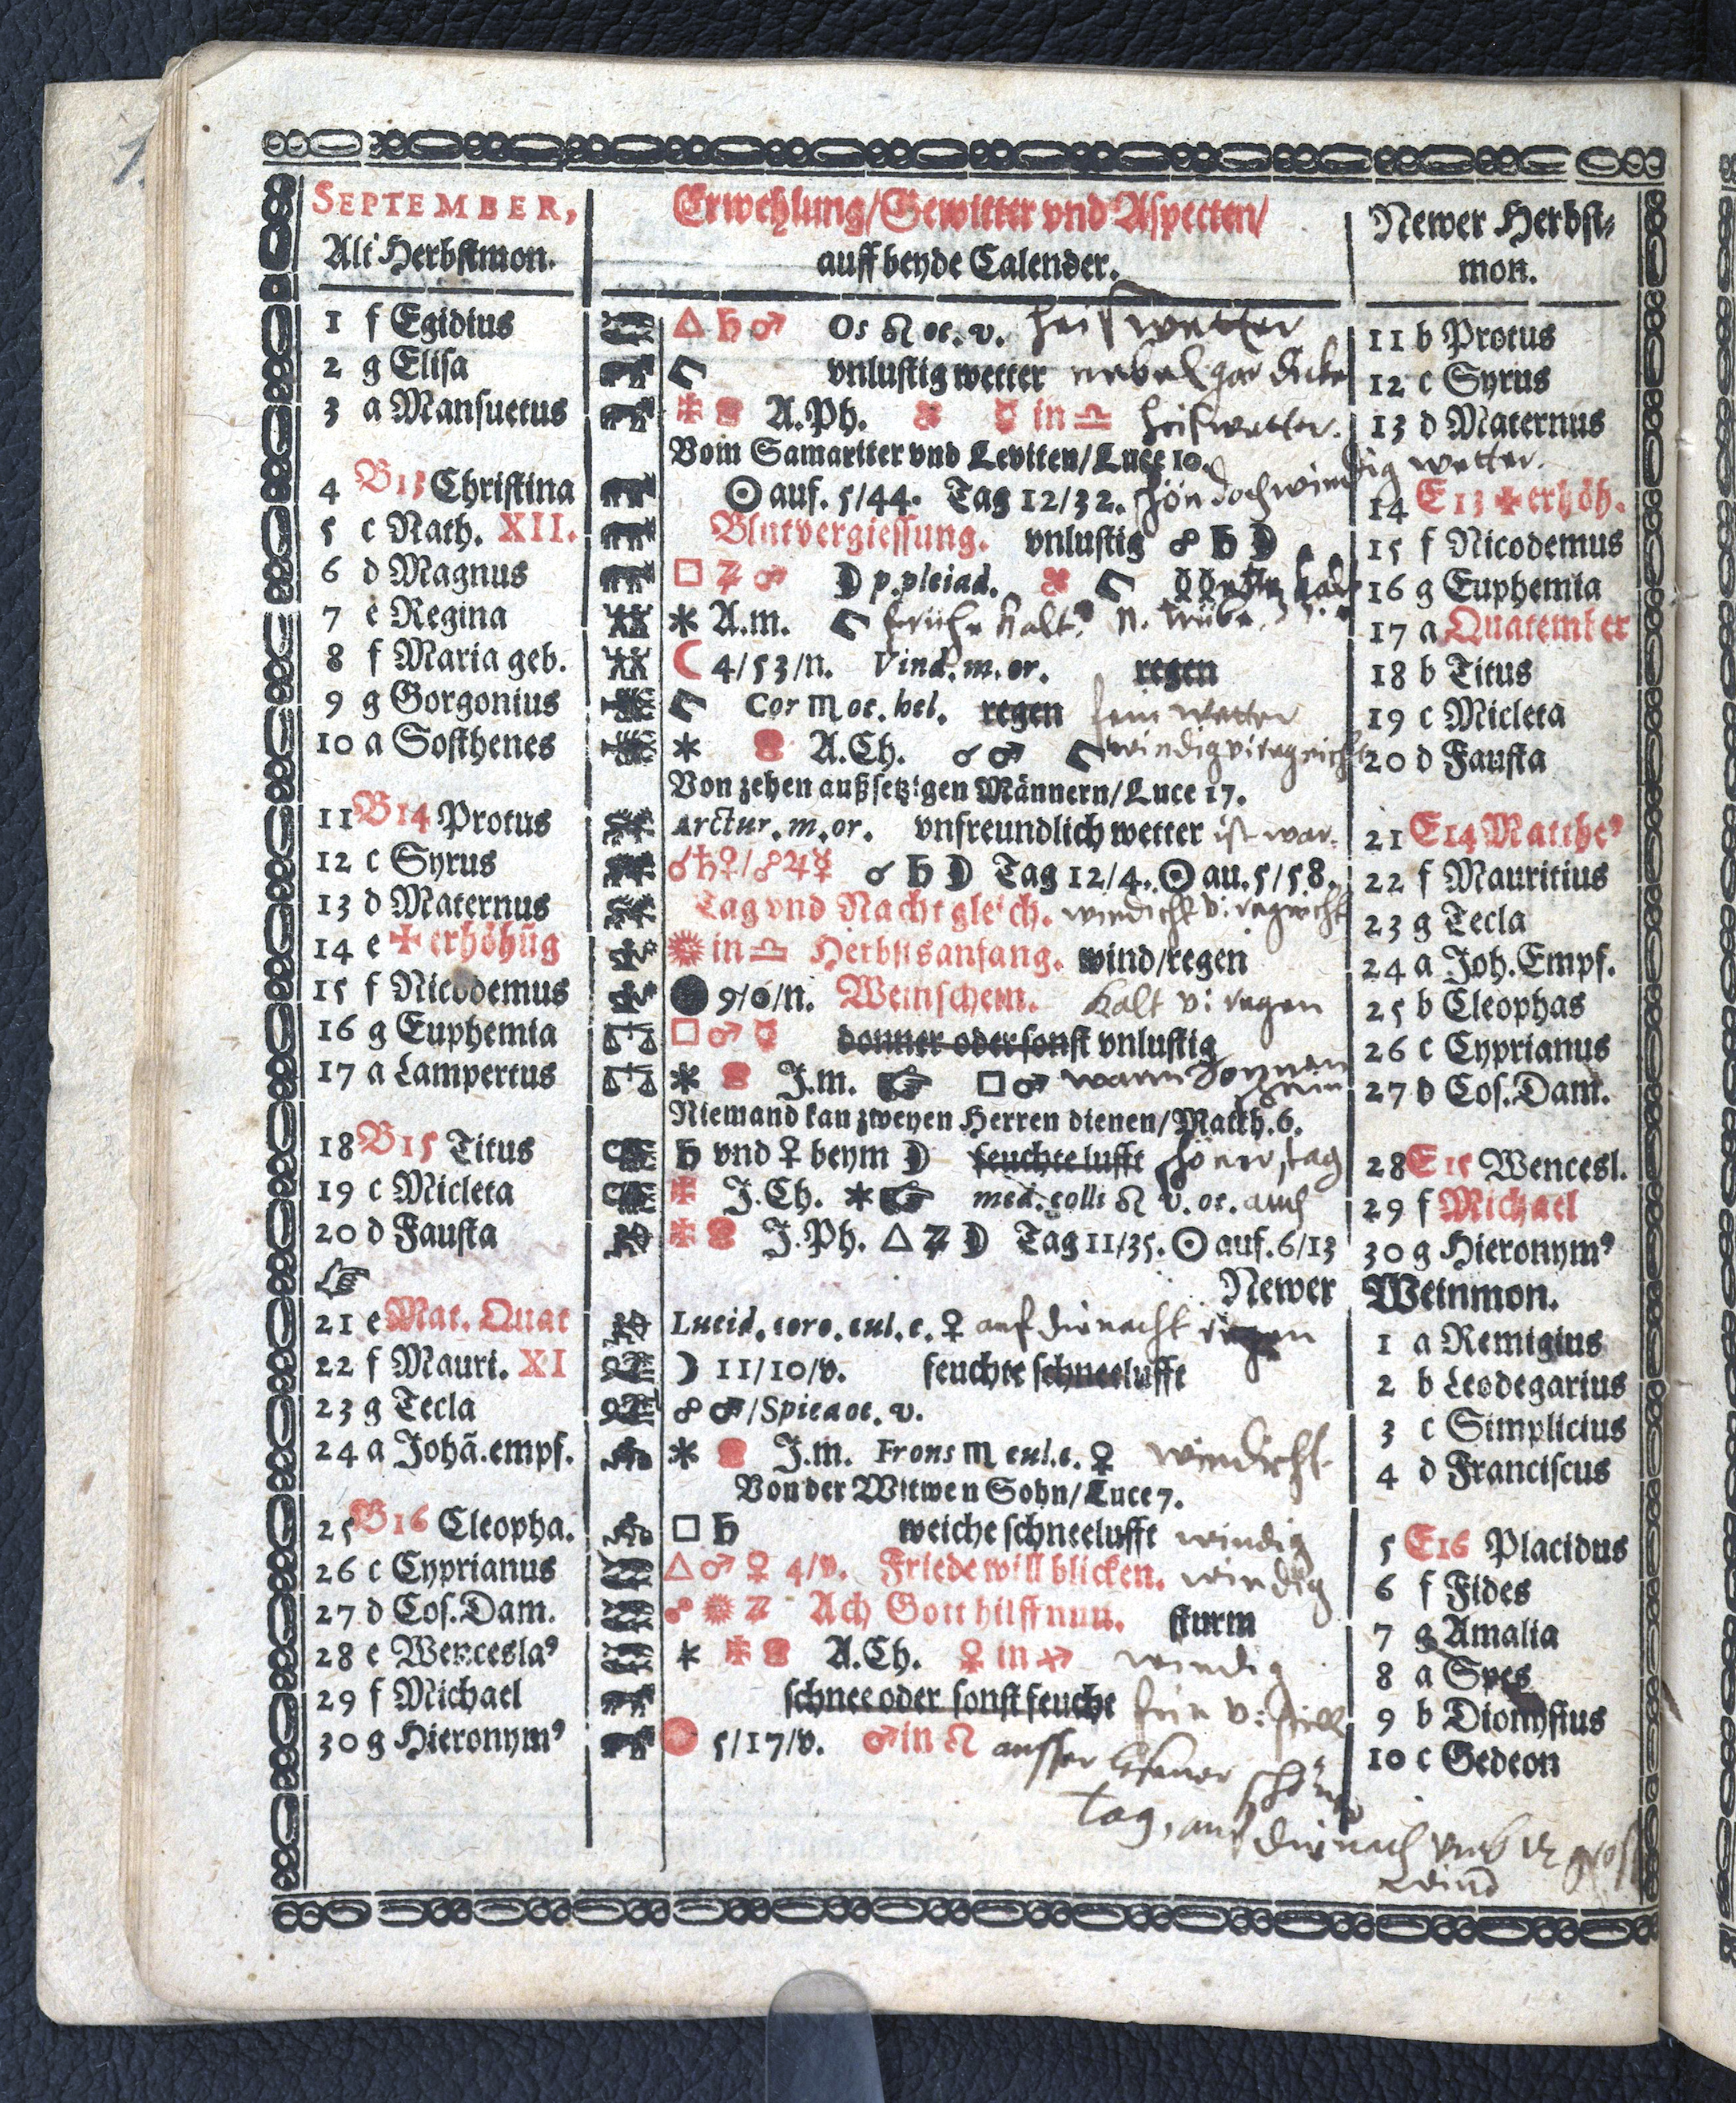 SEPTEMBER,
Alt Herbstmon.
Erwehlung/Gewitter vnd Aspecten/
auff beyde Calender.
Newer Herbst-
mon.
1 f Egidius △ ♄ ♂ Os ♌ oc. v. heis wetter 11 b Protus
2 g Elisa vnlustig wetter nebel gar dicke 12 c Syrus
3 a Mansuetus A.Ph. ☿ in ♎ heis wetter. 13 d Maternus
Vom Samariter vnd Leviten/Luce 10.
4 B13 Christina ☉ auf. 5/44. Tag 12/32. schön doch windig wetter. 14 E13 ✠ erhöh.
5 c Nath. XII. Blutvergiessung. vnlustig ☍ ♄ ☽ 15 f Nicodemus
6 d Magnus □ ♃ ♂ ☽ p. pleiad. 16 g Euphemia
7 e Regina ⚹ A.m. frühe kalt. N. trübe 17 a Quatember
8 f Maria geb. ☾ 4/53/n. Vind. m. or. regen 18 b Titus
9 g Gorgonius Cor ♏ oc. hel. regen fein wetter 19 c Micleta
10 a Sosthenes ⚹ A.Ch. ☌ ♂ windig v: regnicht 20 d Fausta
Von zehen außsetzigen Männern/Luce 17.
11 B14 Protus Arctur. m. or. vnfreundlich wetter ist war. 21 E14 Matthe⁹
12 c Syrus ☌ ♄ ♀/☍ ♃ ☿ ☌ ♄ ☽ Tag 12/4. ☉ au. 5/58. 22 f Mauritius
13 d Maternus Tag vnd Nacht gleich. windicht v: regnicht 23 g Tecla
14 e ✠ erhöhūg ☀ in ♎ Herbstsanfang. wind/regen 24 a Joh. Empf.
15 f Nicodemus ● 9/6/n. Weinschein. kalt v: regen 25 b Cleophas
16 g Euphemia □ ♂ ☿ donner oder sonst vnlustig 26 c Cyprianus
17 a Lampertus ⚹ J.m. ☞ □ ♂ warm 27 d Cos. Dam.
Niemand kan zweyen Herren dienen/Matth. 6.
18 B15 Titus ♄ vnd ♀ beym ☽ feuchte lufft schöner tag 28 E15 Wencesl.
19 c Micleta J.Ch. ⚹ ☞ med. colli ♌ v. oc. auch 29 f Michael
20 d Fausta J.Ph. △ ♃ ☽ Tag 11/35. ☉ auf. 6/13 30 g Hieronym⁹
☞ Newer Weinmon.
21 e Mat. Quat Lucid. coro. cul. c. ♀ auf die nacht regen 1 a Remigius
22 f Mauri. XI ☽ 11/10/v. feuchte schneelufft 2 b Leodegarius
23 g Tecla ☍ ♂/Spica oc. v. 3 c Simplicius
24 a Johā. empf. ⚹ J.m. Frons ♏ cul. c. ♀ windicht 4 d Franciscus
Von der Witwen Sohn/Luce 7.
25 B16 Cleopha. □ ♄ weiche schneelufft windig 5 E16 Placidus
26 c Cyprianus △ ♂ ♀ 4/v. Friede will blicken. windig 6 f Fides
27 d Cos. Dam. ☍ ☀ ♃ Ach Gott hilff nun. sturm 7 g Amalia
28 e Wencesla⁹ ⚹ A.Ch. ♀ in ♐ windig 8 a Spes
29 f Michael schnee oder sonst feucht fein v: still 9 b Dionysius
30 g Hieronym⁹ 5/17/v. ♂ in ♌ schöner 10 c Gedeon
tag, auf die nach gros
wind